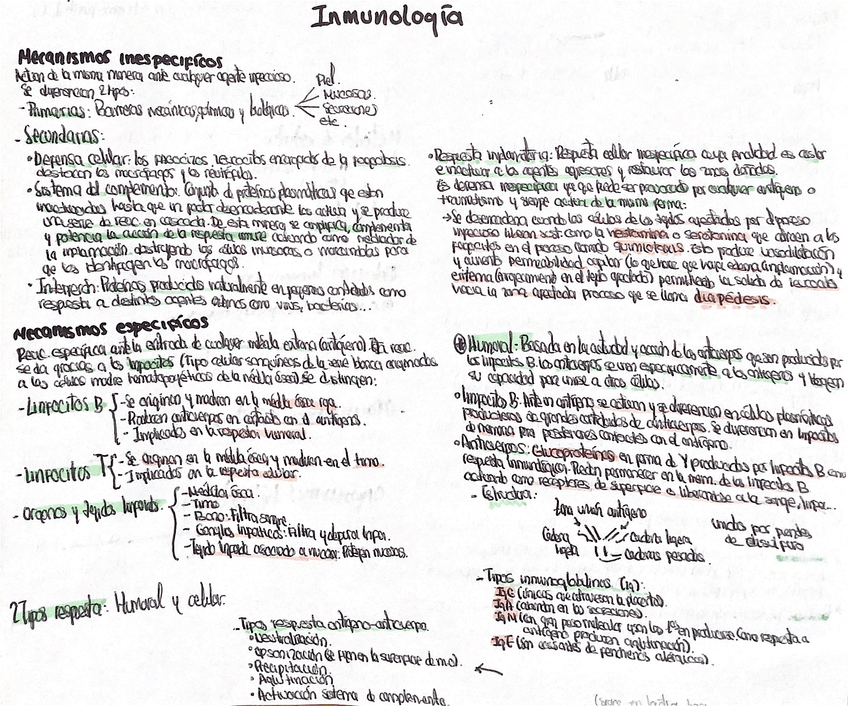 Inmunología
Mecanismos inespecíficos
Actúan de la misma manera ante cualquier agente infeccioso.
Se diferencian 2 tipos:
- Primarias: Barreras mecánicas, químicas y biológicas.
Piel.
Mucosas.
Secreciones
etc.
- Secundarias:
• Defensa celular: los fagocitos leucocitos encargados de la fagocitosis.
destacan los macrófagos y los neutrófilos.
• Sistema del complemento: Conjunto de proteínas plasmáticas que están
inactivadas hasta que un factor desencadenante las activa y se produce
una serie de reac. en cascada. De esta manera se amplifica, complementa
y potencia la acción de la respuesta inmune actuando como mediador de
la inflamación destruyendo las células invasoras o marcándolas para
que las identifiquen los macrófagos.
• Interferón: Proteínas producidas naturalmente en pequeñas cantidades como
respuesta a distintos agentes externos como virus, bacterias...
Mecanismos específicos
Reac. específica ante la entrada de cualquier molécula extraña (antígeno). Esta reac.
se da gracias a los linfocitos (Tipo celular sanguíneas de la serie blanca originadas
a las células madre hematopoyéticas de la médula ósea) se distinguen:
- Linfocitos B
- Se originan y maduran en la médula ósea roja.
- Producen anticuerpos en contacto con el antígeno.
- Implicados en la respuesta humoral.
- Linfocitos T
- Se originan en la médula ósea y maduran en el timo.
- Implicados en la respuesta celular.
- Órganos y tejidos linfoides.
- Médula ósea
- Timo
- Bazo: Filtra sangre.
- Ganglios linfáticos: Filtra y depura linfa.
- Tejido linfoide asociado a mucosas: Protegen mucosas.
2 Tipos respuesta: Humoral y celular.
• Respuesta inflamatoria: Respuesta celular inespecífica cuya finalidad es aislar
e inactivar a los agentes agresores y restaurar las zonas dañadas.
Es defensa inespecífica ya que puede ser provocada por cualquier antígeno o
traumatismo y siempre actúa de la misma forma:
→ Se desencadena cuando las células de los tejidos afectados por el proceso
infeccioso liberan sust como la histamina o serotonina que atraen a los
fagocitos en el proceso llamado quimiotaxis. Esto produce vasodilatación
y aumento permeabilidad capilar (lo que hace que haya edema (inflamación) y
eritema (enrojecimiento en el tejido afectado) permitiendo la salida de leucocitos
hacia la zona afectada proceso que se llama diapédesis.
Humoral: Basada en la actividad y acción de los anticuerpos que son producidos por
los linfocitos B. Los anticuerpos se unen específicamente a los antígenos y tienen
su capacidad para unirse a otras células.
• Linfocitos B: Ante un antígeno se activan y se diferencian en células plasmáticas
productoras de grandes cantidades de anticuerpos. Se diferencian en linfocitos
de memoria para posteriores contactos con el antígeno.
• Anticuerpos: Glucoproteínas en forma de Y producidas por linfocitos B como
respuesta inmunológica. Pueden permanecer en la mem. de los linfocitos B
actuando como receptores de superficie o liberándose a la sangre, linfa...
- Estructura:
Zona unión antígeno
Cadena ligera
Cadena ligera
Cadenas pesadas.
unidas por puentes
de disulfuro
- Tipos inmunoglobulinas (Ig):
IgG (únicas que atraviesan la placenta).
IgA (abundan en las secreciones).
IgM (con gran peso molecular y son las 1ᵃˢ en producirse como respuesta a
antígeno producen aglutinación).
IgE (son causantes de fenómenos alérgicos).
- Tipos respuesta antígeno-anticuerpo.
• Neutralización.
• Opsonización
• Precipitación
• Aglutinación
• Activación sistema de complemento.